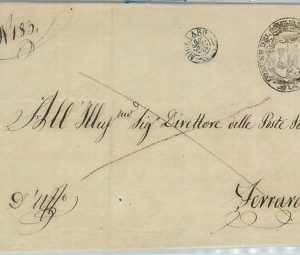 N° 183.
MIGLIARO
All' Illus mo Sig r Direttore delle Poste
D' Uff o
Ferrara